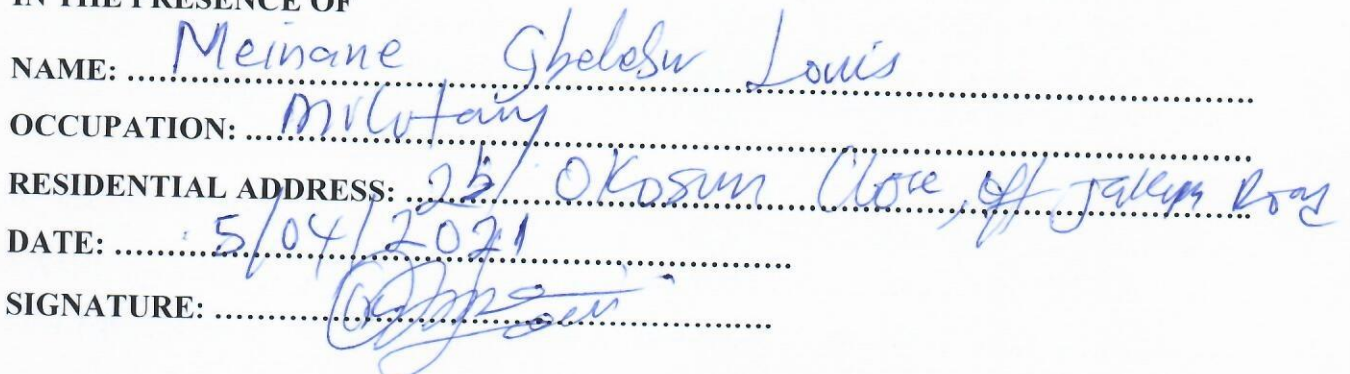 IN THE PRESENCE OF
NAME: Meinane Gbelesu Louis
OCCUPATION: Military
RESIDENTIAL ADDRESS: 25 Okosun Close, off Road
DATE: 5/04/2021
SIGNATURE: